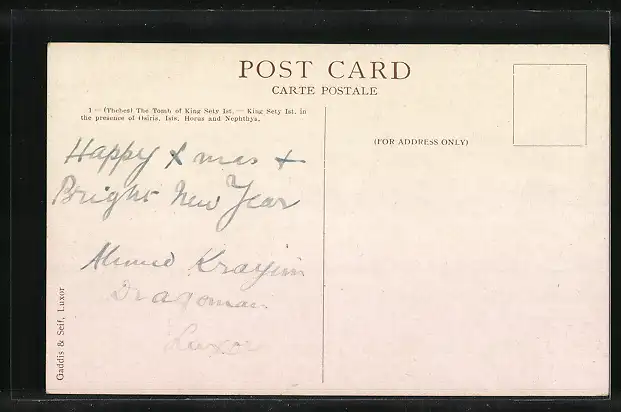 POST CARD
CARTE POSTALE
1 — (Thebes) The Tomb of King Sety Ist. — King Sety Ist. in
the presence of Osiris, Isis, Horus and Nephthys.
(FOR ADDRESS ONLY)
Happy Xmas +
Bright New Year
Dragoman
Luxor
Gaddis & Seif, Luxor